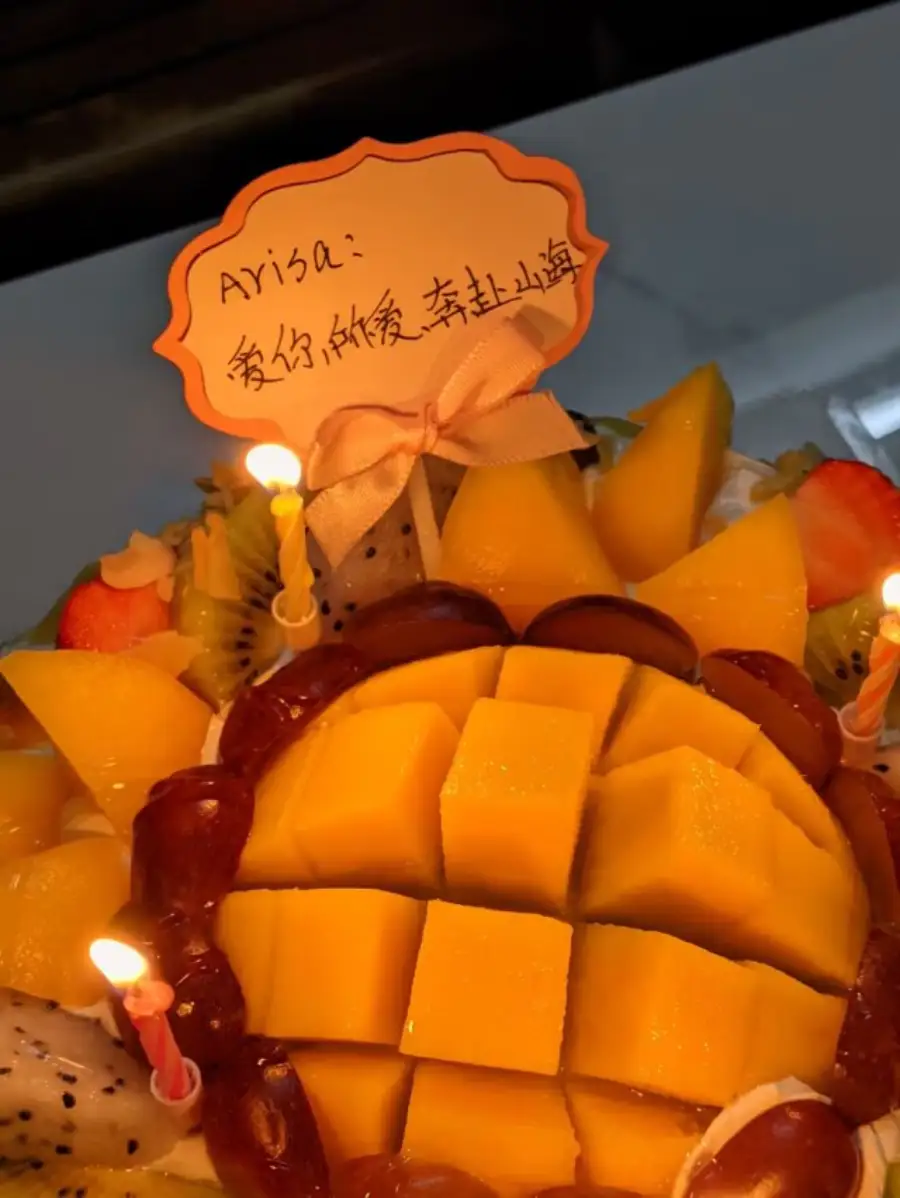 Arisa:
爱你、所爱、奔赴山海